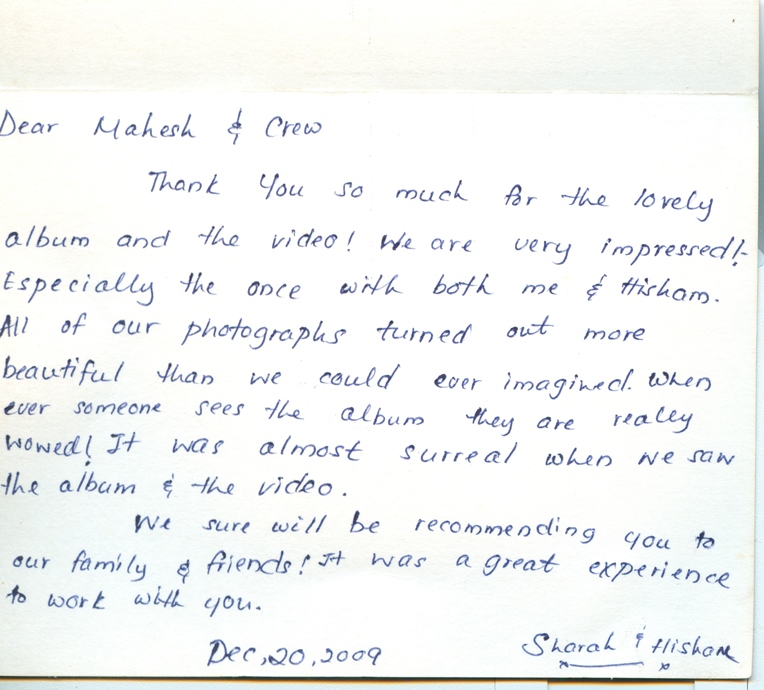 Dear Mahesh & Crew
Thank You so much for the lovely
album and the video! We are very impressed!
Especially the once with both me & Hisham.
All of our photographs turned out more
beautiful than we could ever imagined. When
ever someone sees the album they are really
wowed! It was almost surreal when we saw
the album & the video.
We sure will be recommending you to
our family & friends! It was a great experience
to work with you.
Dec,20,2009 Sharah & Hisham